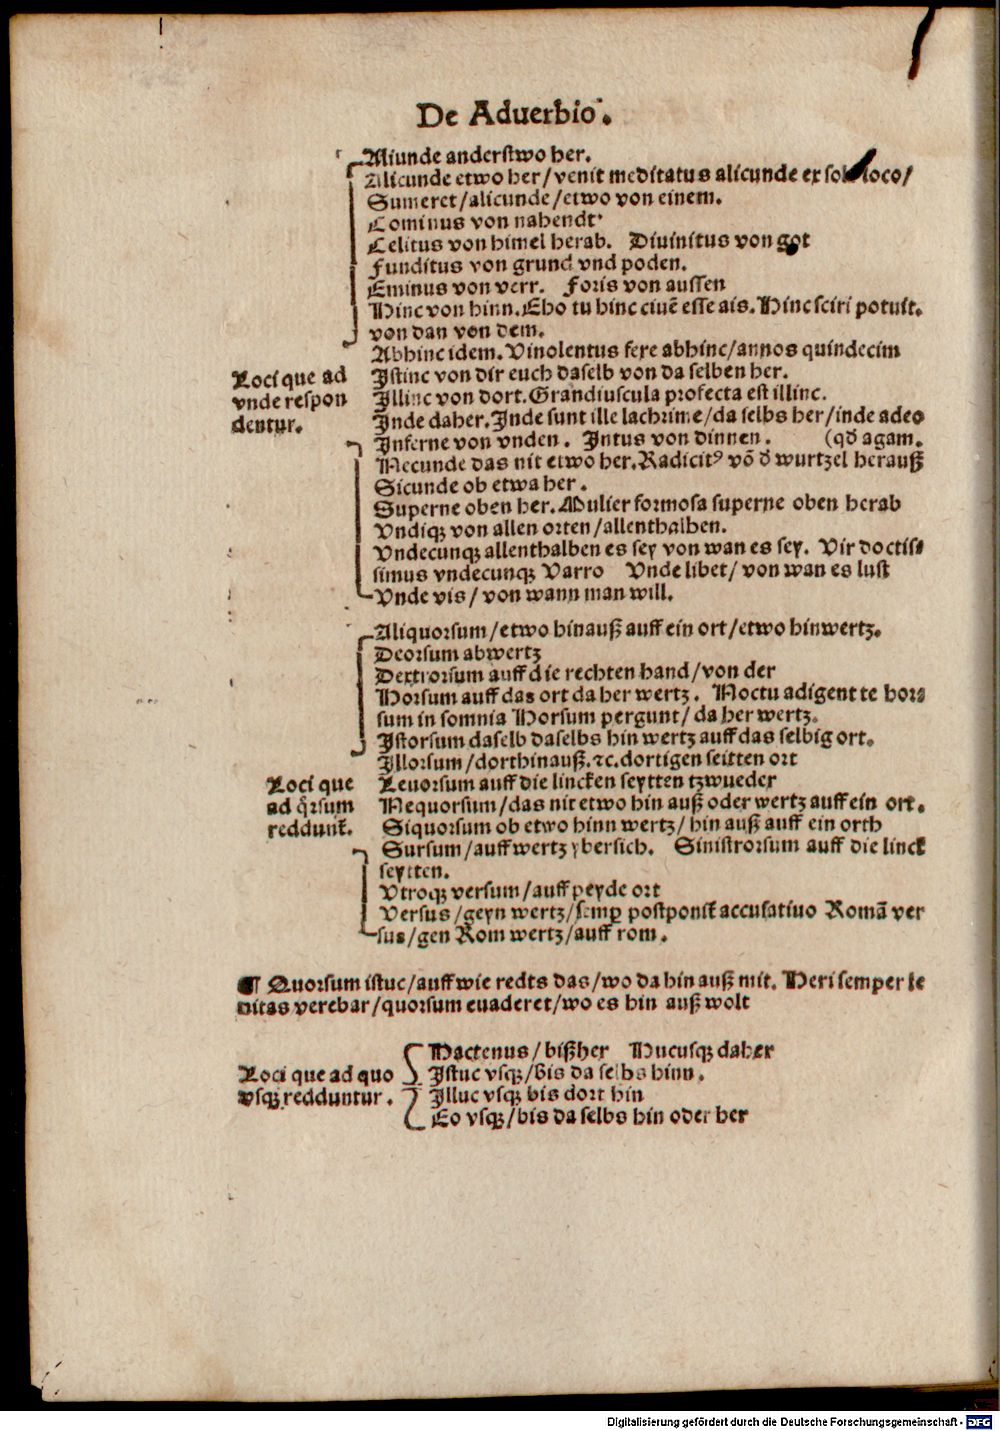 De Aduerbio.
Aliunde anderstwo her.
Alicunde etwo her/venit meditatus alicunde ex solo loco/
Sumeret/alicunde/etwo von einem.
Cominus von nahendt
Celitus von himel herab. Diuinitus von got
Funditus von grund vnd poden.
Eminus von verr. Foris von aussen
Hinc von hinn. Eho tu hinc ciuē esse ais. Hinc sciri potuit.
von dan von dem.
Abhinc idem. Vinolentus fere abhinc/annos quindecim
Loci que ad vnde respondentur.
Istinc von dir euch daselb von da selben her.
Illinc von dort. Grandiuscula profecta est illinc.
Inde daher. Inde sunt ille lachrime/da selbs her/inde adeo
Inferne von vnden. Intus von dinnen. (qđ agam.
Necunde das nit etwo her. Radicitꝰ vō đ wurtzel herauß
Sicunde ob etwa her.
Superne oben her. Mulier formosa superne oben herab
Vndiqꝫ von allen orten/allenthalben.
Vndecunqꝫ allenthalben es sey von wan es sey. Vir doctis-
simus vndecunqꝫ Varro Vnde libet/ von wan es lust
Vnde vis/ von wann man will.
Aliquorsum/etwo hinauß auff ein ort/etwo hinwertz.
Deorsum abwertz
Dextrorsum auff die rechten hand/von der
Horsum auff das ort da her wertz. Noctu adigent te hor-
sum in somnia Horsum pergunt/ da her wertz.
Istorsum daselb daselbs hin wertz auff das selbig ort.
Illorsum/dorthinauß.⁊c.dortigen seitten ort
Loci que ad q̄rsum reddunt̄.
Leuorsum auff die lincken seytten tzwueder
Nequorsum/das nit etwo hin auß oder wertz auff ein ort.
Siquorsum ob etwo hinn wertz/ hin auß auff ein orth
Sursum/auffwertz ybersich. Sinistrorsum auff die linck
seytten.
Vtroqꝫ versum/auff peyde ort
Versus/geyn wertz/semꝑ postponit̄ accusatiuo Romā ver
sus/gen Rom wertz/auff rom.
¶ Quorsum istuc/auff wie redts das/wo da hin auß mit. Heri semper le
nitas verebar/quorsum euaderet/wo es hin auß wolt
Loci que ad quo vsqꝫ redduntur.
Hactenus/bißher Hucusqꝫ daher
Istuc vsqꝫ/bis da selbs hinn.
Illuc vsqꝫ bis dort hin
Eo vsqꝫ/bis da selbs hin oder her
Digitalisierung gefördert durch die Deutsche Forschungsgemeinschaft - DFG